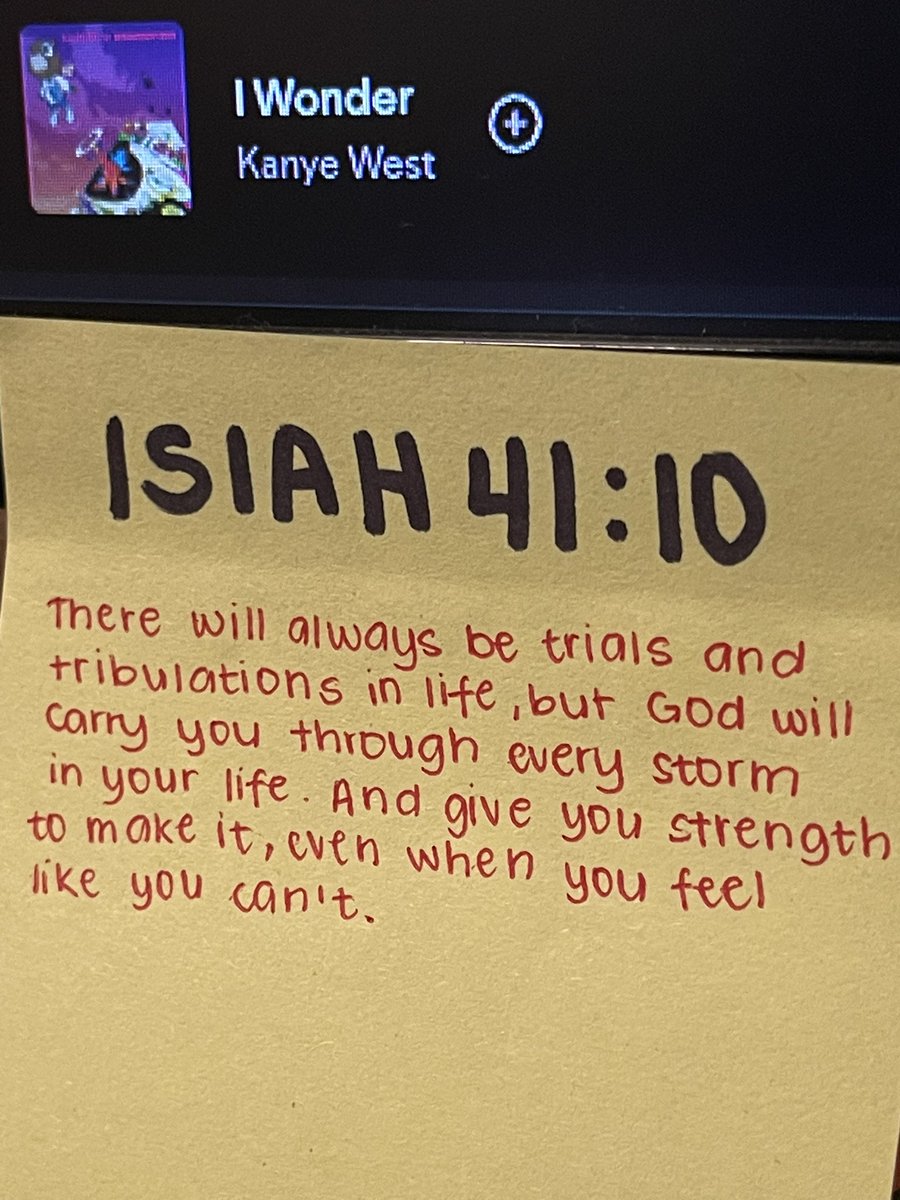 I Wonder
Kanye West
ISIAH 41:10
There will always be trials and
tribulations in life, but God will
carry you through every storm
in your life. And give you strength
to make it, even when you feel
like you can't.